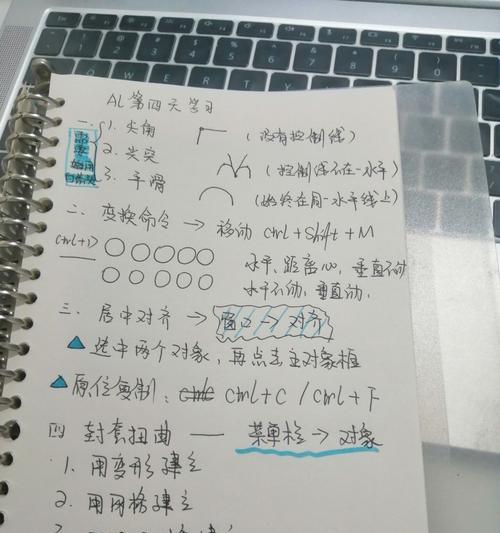 AI 第四天学习
一. 1. 尖角 (没有控制线)
2. 尖突 (控制线不在一水平)
3. 平滑 (始终在同一水平线上)
二、变换命令 → 移动 ctrl + Shift + M
ctrl+D
水平、距离心, 垂直不动
水平不动, 垂直动,
三. 居中对齐 → 窗口 → 对齐
选中两个对象, 再点击主对象框
原位复制: ctrl+C / ctrl+F
四 封套扭曲 —— 菜单栏 → 对象
1. 用变形建立
2. 用网格建立